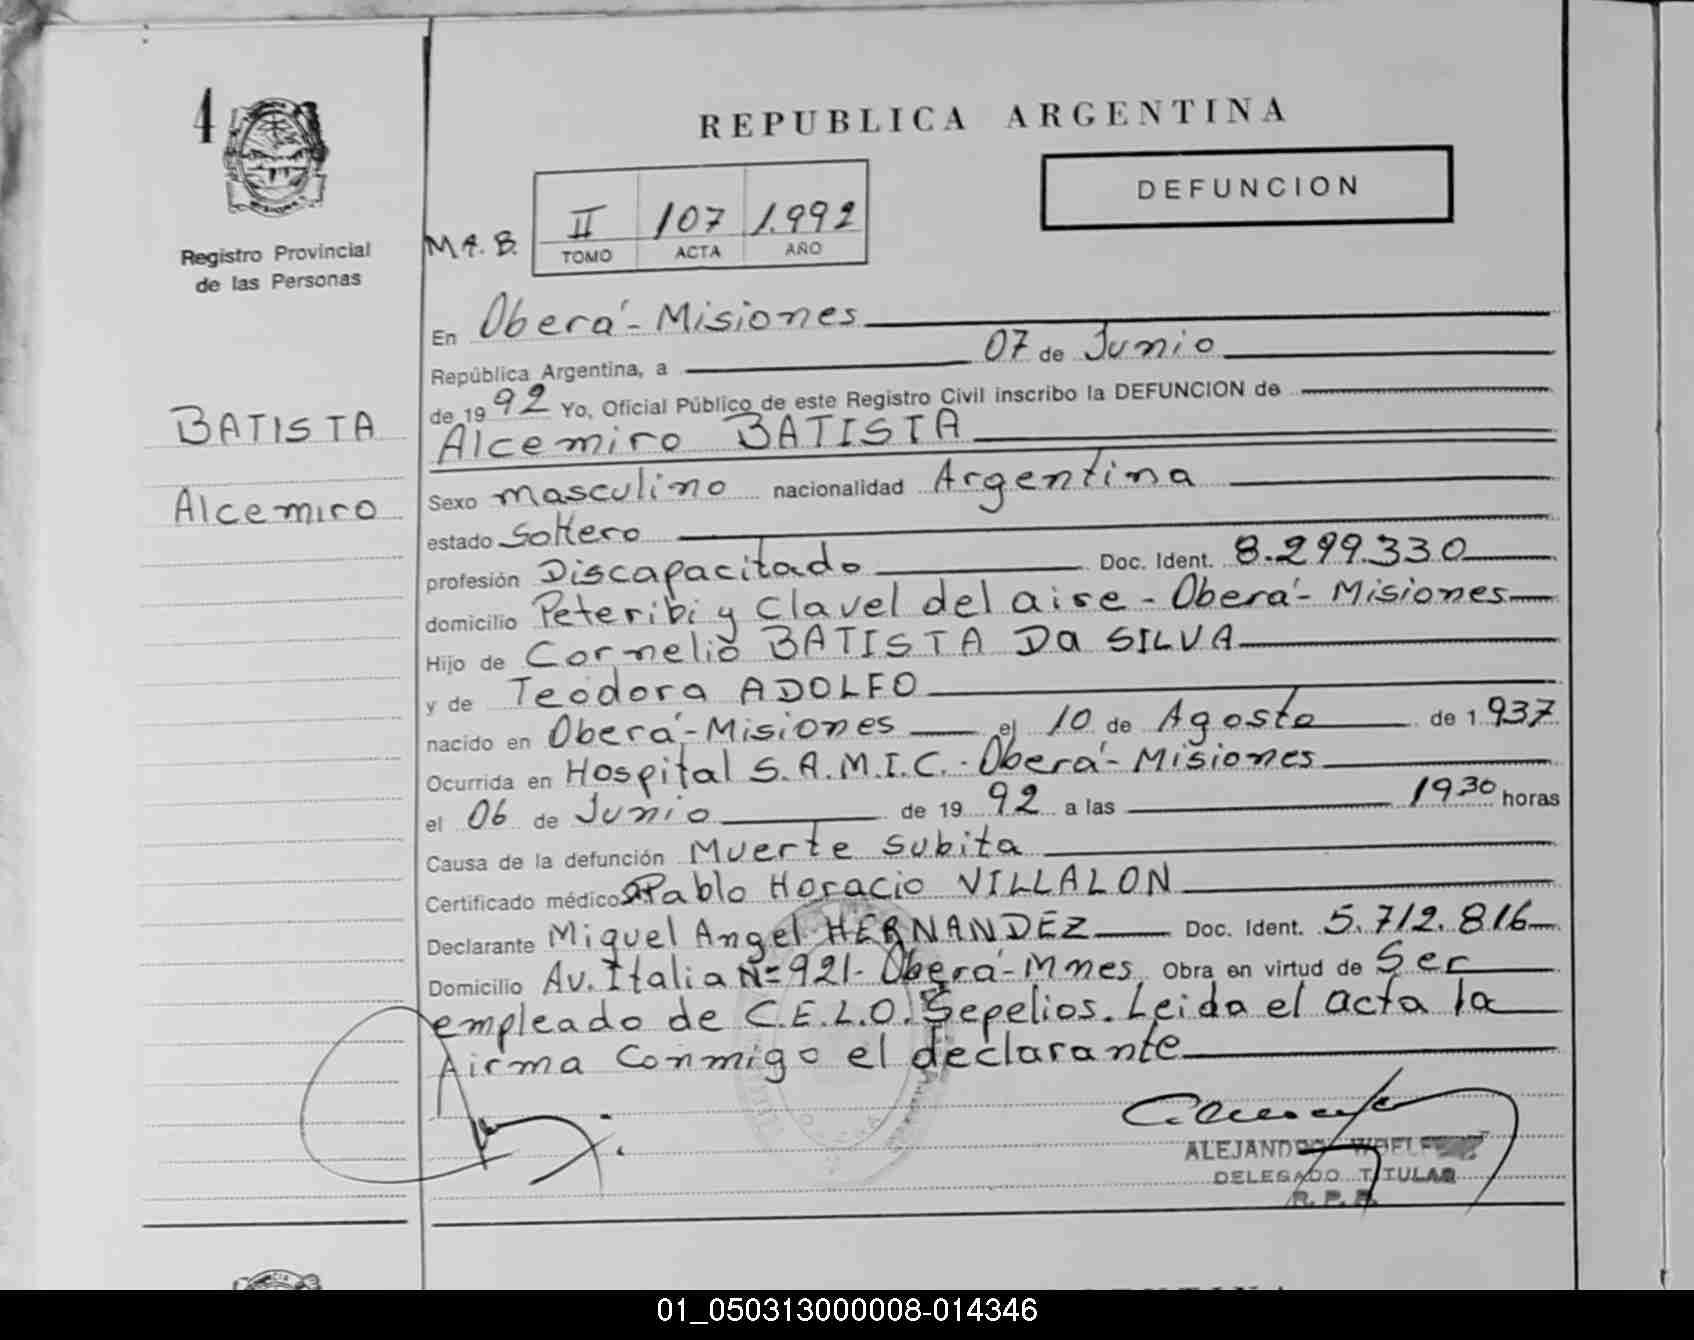 4
REPUBLICA ARGENTINA
DEFUNCION
Registro Provincial
de las Personas
M A. B.
II 107 1.992
TOMO ACTA AÑO
BATISTA
Alcemiro
En Oberá - Misiones
República Argentina, a 07 de Junio
de 19 92 Yo, Oficial Público de este Registro Civil inscribo la DEFUNCION de
Alcemiro BATISTA
Sexo masculino nacionalidad Argentina
estado Soltero
profesión Discapacitado Doc. Ident. 8.299.330
domicilio Peteribi y Clavel del aire - Oberá - Misiones
Hijo de Cornelio BATISTA Da SILVA
y de Teodora ADOLFO
nacido en Oberá - Misiones el 10 de Agosto de 1.937
Ocurrida en Hospital S.A.M.I.C. - Oberá - Misiones
el 06 de Junio de 19 92 a las 1930 horas
Causa de la defunción Muerte Subita
Certificado médico Pablo Horacio VILLALON
Declarante Miguel Angel HERNANDEZ Doc. Ident. 5.712.816
Domicilio Av. Italia Nº 921 - Oberá - Mnes Obra en virtud de Ser
empleado de C.E.L.O. Sepelios. Leida el acta la
firma conmigo el declarante
DELEGADO TITULAR
R. P. P.
01_050313000008-014346